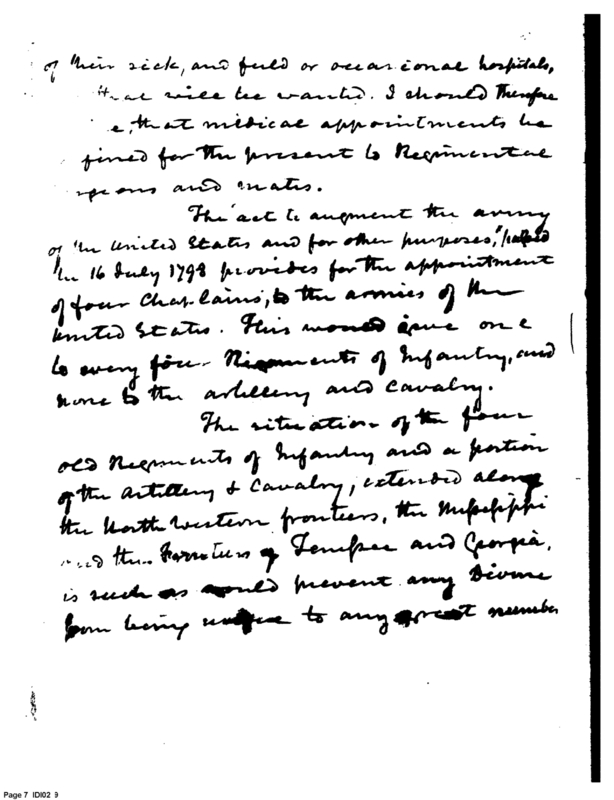 of their sick, and field or occasional hospitals,
that will be wanted. I should therefore
that medical appointments be
for the present to Regimental
and mates.
The act to augment the army
of the United States and for other purposes," passed
the 16 July 1798 provides for the appointment
of four Chaplains, to the armies of the
United States. This would give one
to every four Regiments of Infantry, and
none to the artillery and cavalry.
The situation of the four
old Regiments of Infantry and a portion
of the artillery & Cavalry, extended along
the North Western frontiers, the Mississippi
and the Frontiers of Tennessee and Georgia,
is such as would prevent any Divine
from being to any great number
Page 7 IDI02 9